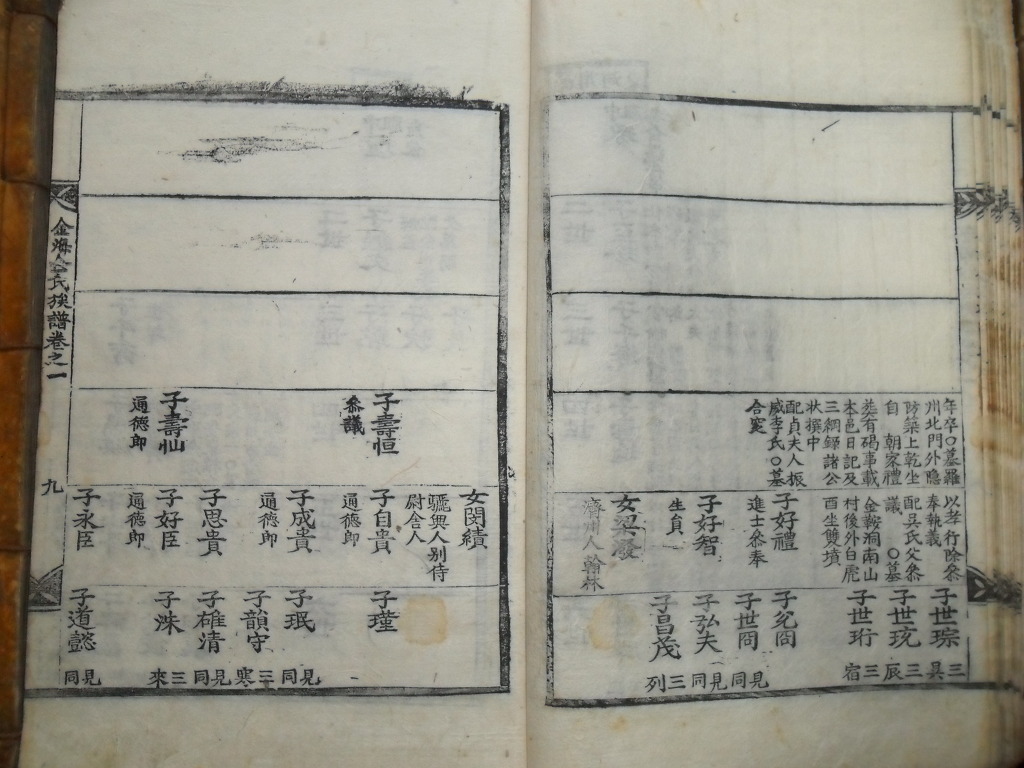 年卒〇墓羅
州北門外隐
防築上乾坐
自 朝家禮
葬有碣事載
本邑日記及
三綱録諸公
状撰中
配貞夫人振
威李氏〇墓
合窆
以孝行除叅
奉執義
配吳氏父叅
議 〇墓
金鞍洞南山
村後外白虎
酉坐雙墳
子好禮
進士叅奉
子好智
生員
女梁應
濟州人翰林
子世琮
三
昃
子世玧
三
辰
子世珩
三
宿
子允問
見同
子世問
見同
子弘夫
見同
子昌茂
三
列
子壽恒
叅議
子壽仙
通德郎
女閔績
驪興人別侍
尉舍人
子自貴
通德郎
子成貴
通德郎
子思貴
子好臣
通德郎
子永臣
子瑾
子珉
見同
子韻守
三
寒
子碓清
見同
子洙
三
來
子道懿
見同
金海金氏族譜卷之一
九